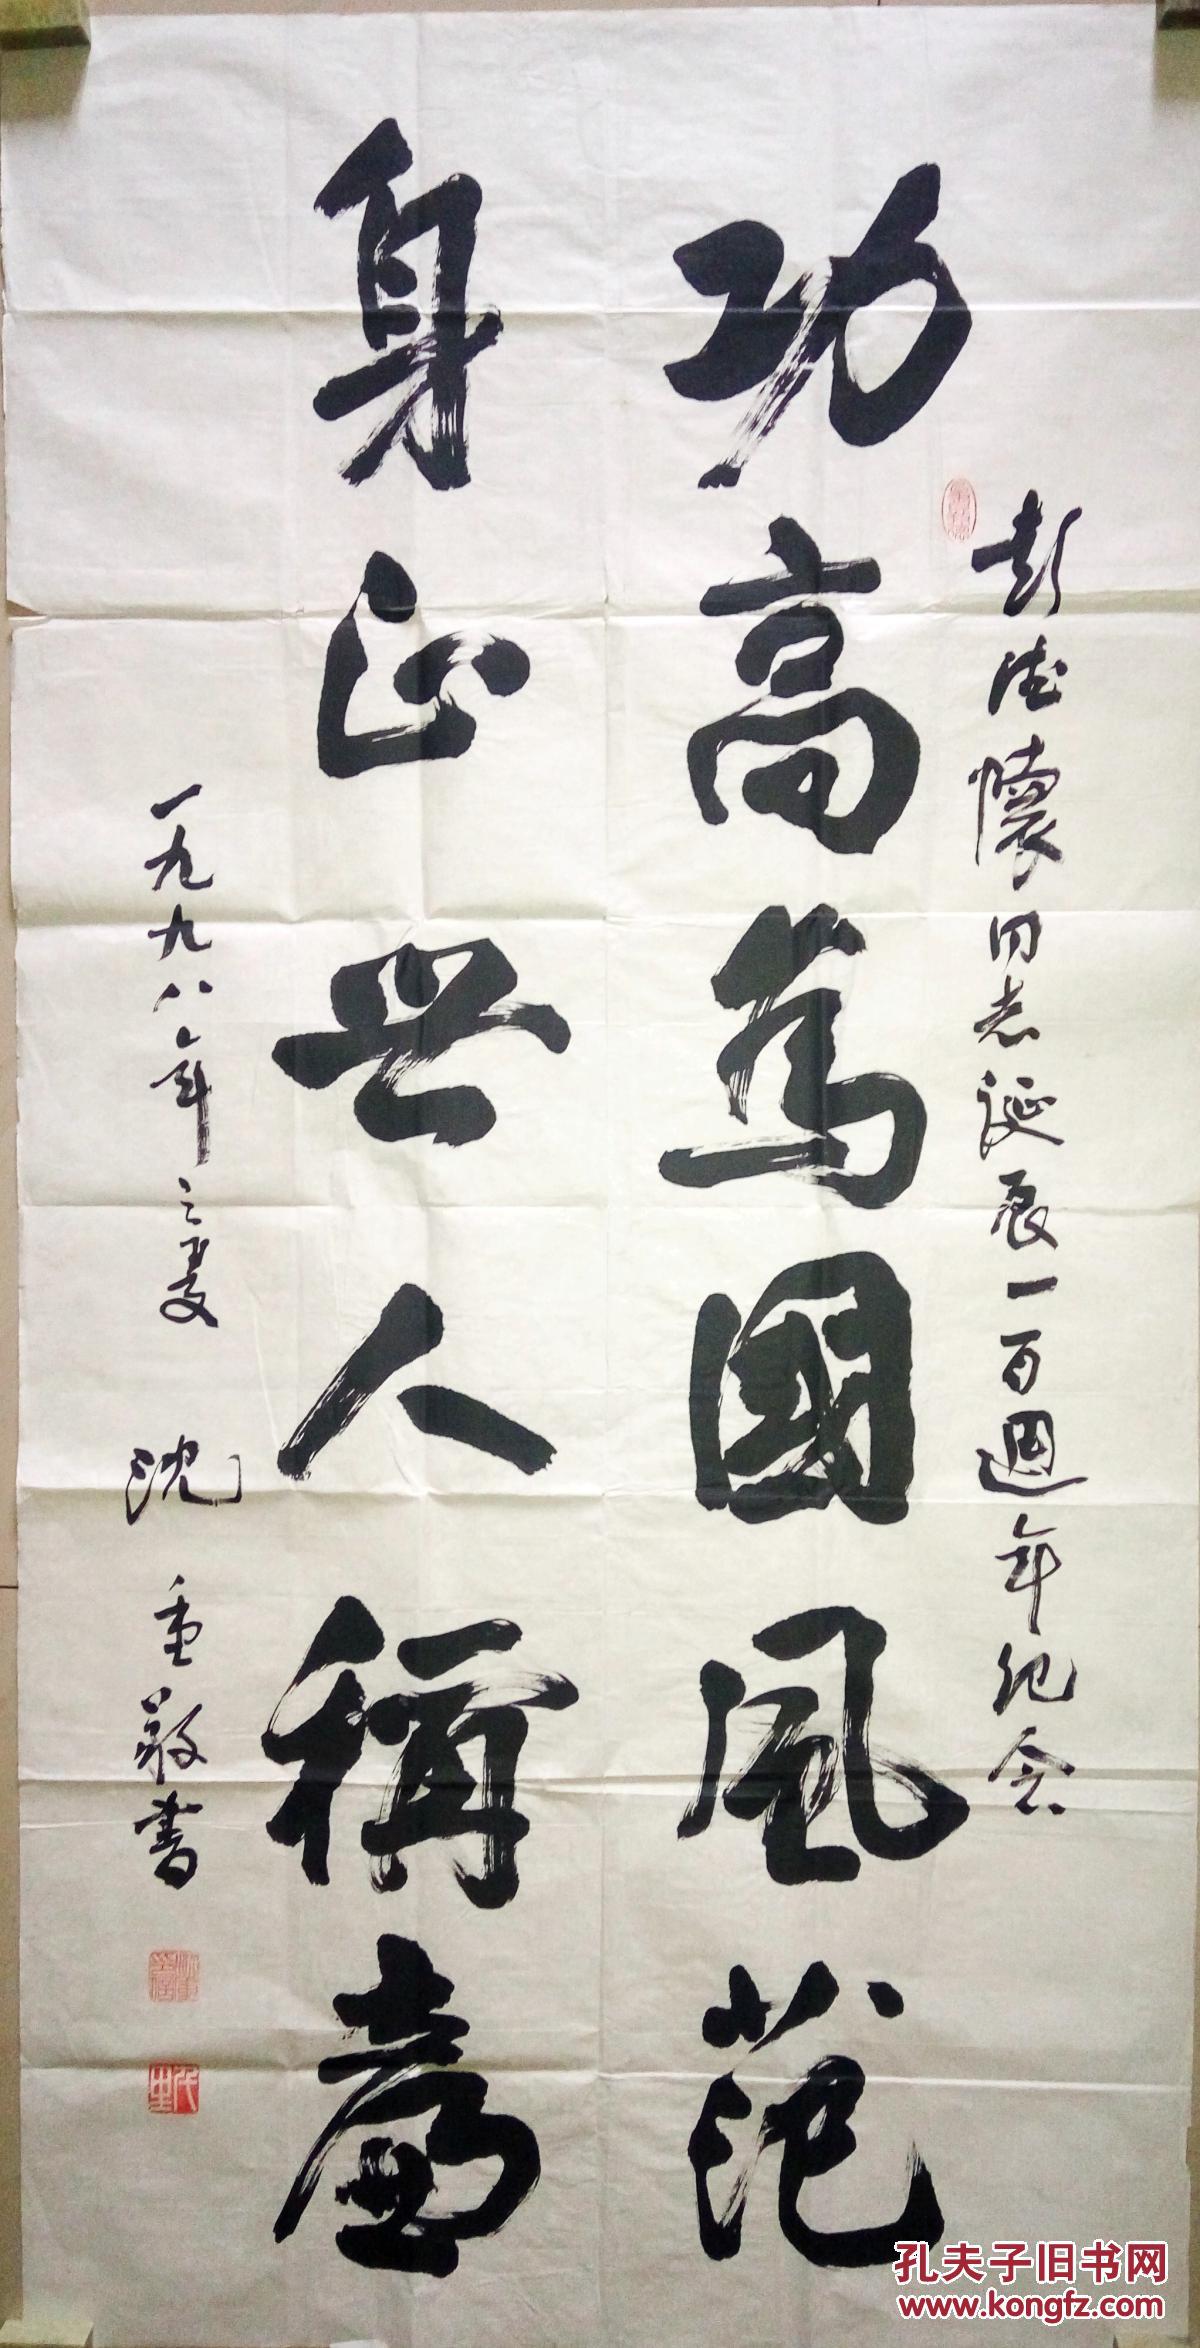 彭德懷同志誕辰一百週年纪念
功高為國風范
身正世人稱彥
一九九八年之夏 沈重敬書
孔夫子旧书网
www.kongfz.com